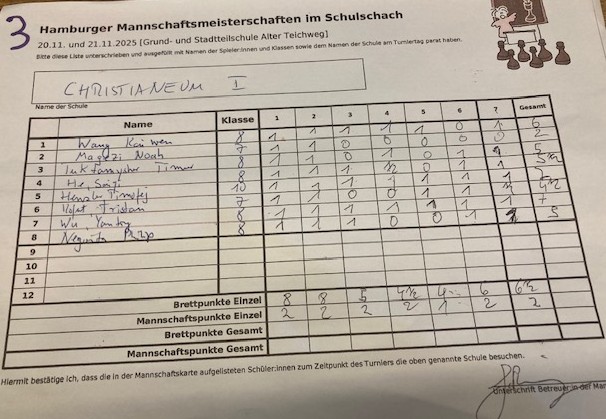 3
Hamburger Mannschaftsmeisterschaften im Schulschach
20.11. und 21.11.2025 [Grund- und Stadtteilschule Alter Teichweg]
Bitte diese Liste unterschrieben und ausgefüllt mit Namen der Spieler:innen und Klassen sowie dem Namen der Schule am Turniertag parat haben.
CHRISTIANEUM I
Name der Schule
Name Klasse 1 2 3 4 5 6 7 Gesamt
1 Wang 8 1 1 1 1 1 0 1 6
2 Noah 7 1 1 0 0 0 0 0 2
3 Timur 8 1 1 0 1 0 1 1 5
4 He, 8 1 1 1 ½ 0 1 1 5½
5 10 1 1 1 1 1 1 1 7
6 Tristan 7 1 1 0 0 1 1 ½ 4½
7 Wu, 8 1 1 1 1 1 1 1 7
8 8 1 1 1 0 0 1 1 5
9
10
11
12
Brettpunkte Einzel 8 8 5 4½ 4 6 6½
Mannschaftspunkte Einzel 2 2 2 2 1 2 2
Brettpunkte Gesamt
Mannschaftspunkte Gesamt
Hiermit bestätige ich, dass die in der Mannschaftskarte aufgelisteten Schüler:innen zum Zeitpunkt des Turniers die oben genannte Schule besuchen.
Unterschrift Betreuer:in der Man